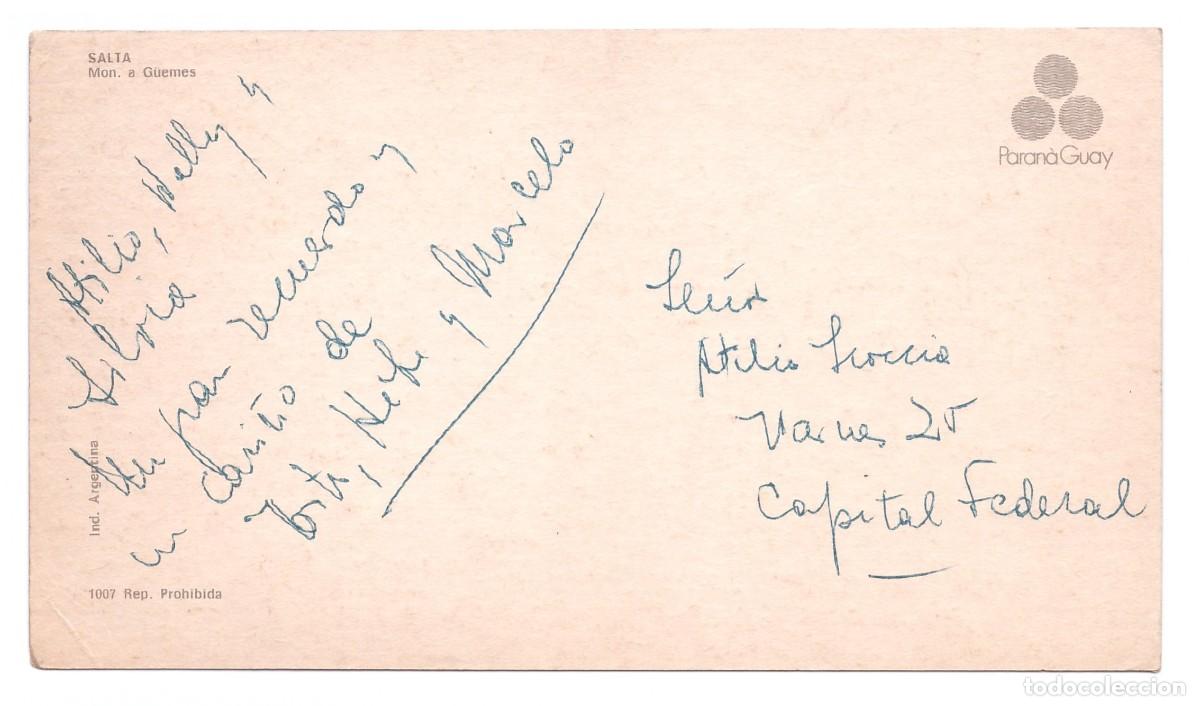 SALTA
Mon. a Güemes
Atilio, Nelly y
Silvia,
Un gran recuerdo y
un cariño de
y Marcelo
Ind. Argentina
1007 Rep. Prohibida
ParanàGuay
Señor
Atilio
25
Capital Federal
todocoleccion